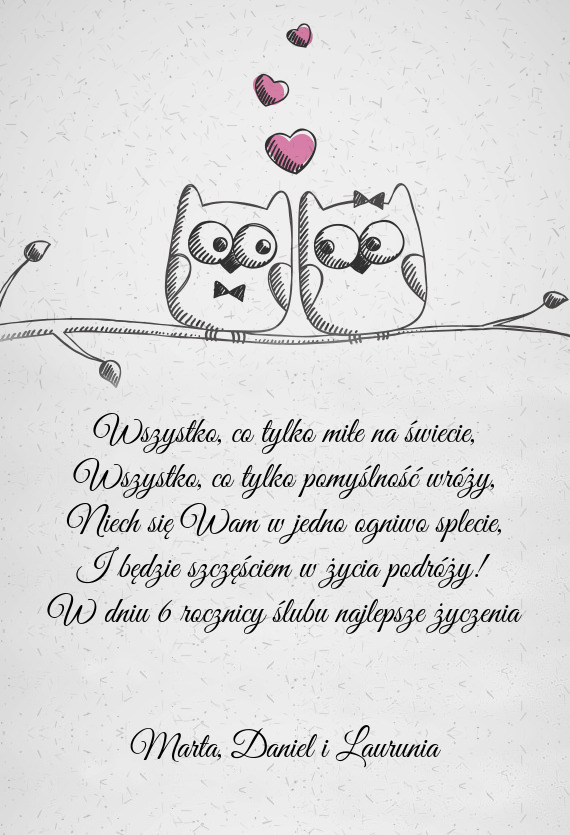 Wszystko, co tylko miłe na świecie,
Wszystko, co tylko pomyślność wróży,
Niech się Wam w jedno ogniwo splecie,
I będzie szczęściem w życia podróży!
W dniu 6 rocznicy ślubu najlepsze życzenia
Marta, Daniel i Laurunia